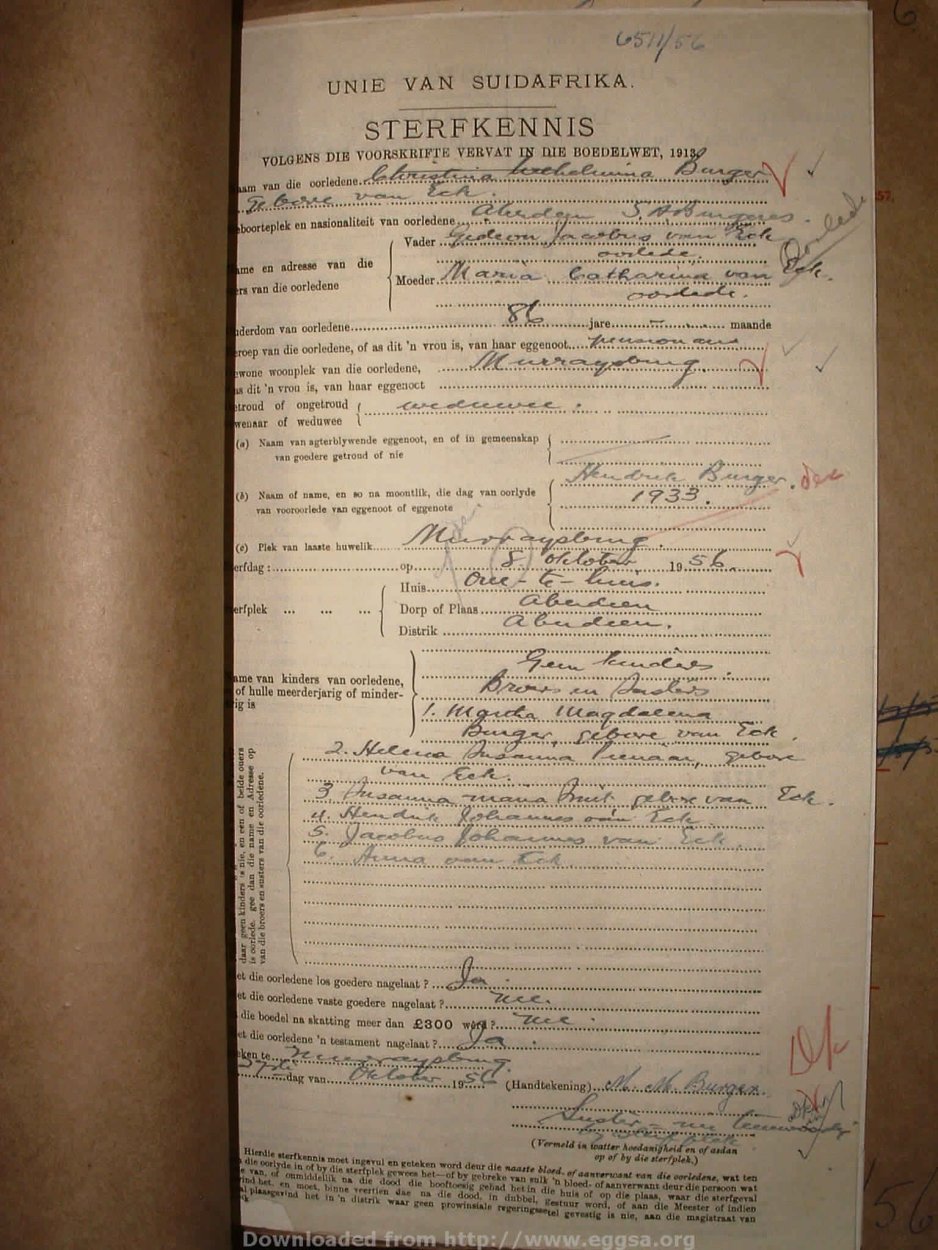 6511/56
UNIE VAN SUIDAFRIKA.
STERFKENNIS
VOLGENS DIE VOORSKRIFTE VERVAT IN DIE BOEDELWET, 1913.
aam van die oorledene. Christina Wilhelmina Burger
Gebore van Eck.
eboorteplek en nasionaliteit van oorledene. Aberdeen S.A. Burgeres.
Vader Gideon Jacobus van Eck oorlede
oorlede.
ame en adresse van die
ers van die oorledene
Moeder. Maria Catharina van Eck.
oorlede.
nderdom van oorledene. 86 jare. — maande
eroep van die oorledene, of as dit 'n vrou is, van haar eggenoot.
ewone woonplek van die oorledene, Murraysburg.
as dit 'n vrou is, van haar eggenoot
etroud of ongetroud weduwee.
wenaar of weduwee
(a) Naam van agterblywende eggenoot, en of in gemeenskap
van goedere getroud of nie
Hendrik Burger.
(b) Naam of name, en so na moontlik, die dag van oorlyde 1933.
van vooroorlede van eggenoot of eggenote
(c) Plek van laaste huwelik. Murraysburg.
erfdag: op 8 Oktober 1956.
Huis. Oue-te-huis.
erfplek ... ... ... Dorp of Plaas Aberdeen
Distrik Aberdeen.
Geen kinders.
ame van kinders van oorledene, Broers en Susters
of hulle meerderjarig of minder-
ig is
1. Martha Magdalena
Burger, gebore van Eck.
2. Helena Susanna Pienaar, gebore
van Eck.
3. Susanna Maria Smit gebore van Eck.
4. Hendrik Johannes van Eck
5. Jacobus Johannes van Eck.
6. Anna van Eck
daar geen kinders is nie, en een of beide ouers
is oorlede, gee dan die name en Adresse op
van die broers en susters van die oorledene.
et die oorledene los goedere nagelaat? Ja.
et die oorledene vaste goedere nagelaat? Nee.
die boedel na skatting meer dan £300 werd? Nee.
et die oorledene 'n testament nagelaat? Ja.
eken te Murraysburg
dag van Oktober 1956 (Handtekening) M. M. Burger.
Suster - nie teenwoordig
(Vermeld in watter hoedanigheid en of asdan
op of by die sterfplek.)
Hierdie sterfkennis moet ingevul en geteken word deur die naaste bloed- of aanverwant van die oorledene, wat ten
die oorlyde in of by die sterfplek gewees het—of by gebreke van sulk 'n bloed- of aanverwant deur die persoon wat
e van, of onmiddellik na die dood die hooftoesig gehad het in die huis of op die plaas, waar die sterfgeval
vind het, en moet, binne veertien dae na die dood, in dubbel, gestuur word, of aan die Meester of indien
al plaasgevind het in 'n distrik waar geen provinsiale regeringsetel gevestig is nie, aan die magistraat van
Downloaded from http://www.eggsa.org